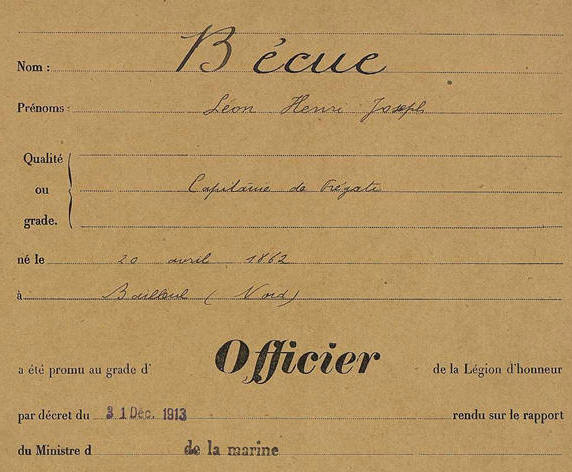 Nom : Bécue
Prénoms : Léon Henri Joseph
Qualité
ou Capitaine de Frégate
grade.
né le 20 avril 1862
à Bailleul (Nord)
a été promu au grade d' Officier de la Légion d'honneur
par décret du 31 Déc. 1913 rendu sur le rapport
du Ministre d de la marine